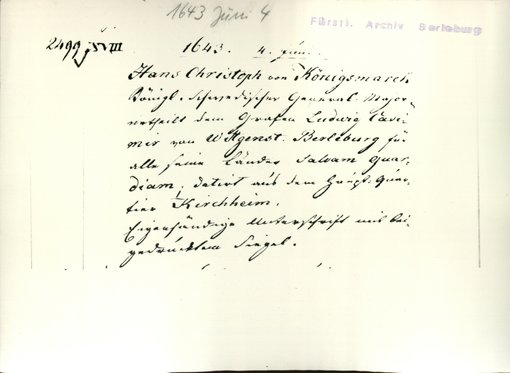 1643 Juni 4
Fürstl. Archiv Berleburg
2499 1643. 4. Jun.
Hans Christoph von Königsmarck
Königl. Schwedischer General-Major
ertheilt dem Grafen Ludwig Casi-
mir von Wittgenst. Berleburg für
alle seine Länder Salvam Guar-
diam, datirt aus dem Haupt-Quar-
tier Kirchheim.
Eigenhändige Unterschrift mit bei-
gedrücktem Siegel.